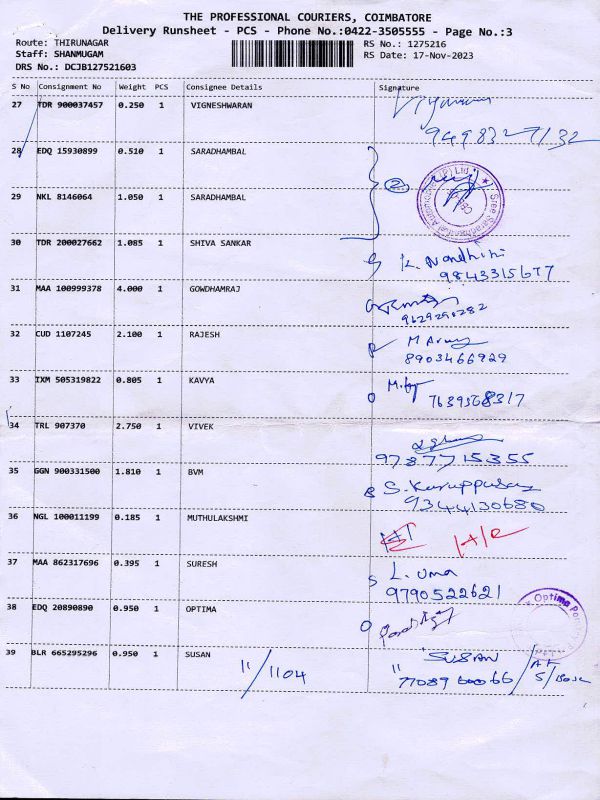 THE PROFESSIONAL COURIERS, COIMBATORE
Delivery Runsheet - PCS - Phone No.:0422-3505555 - Page No.:3
Route: THIRUNAGAR RS No.: 1275216
Staff: SHANMUGAM RS Date: 17-Nov-2023
DRS No.: DCJB127521603
S No Consignment No Weight PCS Consignee Details Signature
27 TDR 900037457 0.250 1 VIGNESHWARAN
9498327132
28 EDQ 15930899 0.510 1 SARADHAMBAL
2
29 NKL 8146064 1.050 1 SARADHAMBAL
30 TDR 200027662 1.085 1 SHIVA SANKAR K. Nandhini
9843315677
31 MAA 100999378 4.000 1 GOWDHAMRAJ
9629290282
32 CUD 1107245 2.100 1 RAJESH
8903466929
33 IXM 505319822 0.805 1 KAVYA
7639568317
34 TRL 907370 2.750 1 VIVEK
9787715355
35 GGN 900331500 1.810 1 BVM
S. Karuppusamy
9344130680
36 NGL 100011199 0.185 1 MUTHULAKSHMI
37 MAA 862317696 0.395 1 SURESH
S L. Uma
9790522621
38 EDQ 20890890 0.950 1 OPTIMA Optima
39 BLR 665295296 0.950 1 SUSAN 11/1104 SUSAN